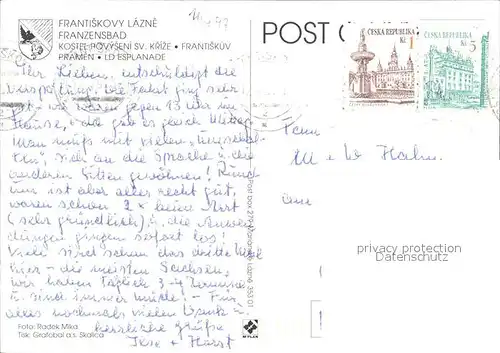 FRANTIŠKOVY LÁZNĚ
FRANZENSBAD
KOSTEL POVÝŠENÍ SV. KŘÍŽE • FRANTIŠKŮV
PRAMEN • LD ESPLANADE
POST C
ČESKÁ REPUBLIKA
Kč 1
ČESKÁ REPUBLIKA
Kč 5
Ihr Lieben, entschuldigt die
Verspätung. Die Fahrt ging sehr
gut wir waren gegen 13 Uhr im
Hause, da gab es gleich Mittag.
Man muß mit vielen
sich an die Sprache u. die
anderen Sitten gewöhnen! Rund
um ist aber alles recht gut,
waren schon 2 x beim Arzt
(sehr gründlich) u. die Anwen
dungen gingen sofort los!
Viele sind das dritte Mal
hier - die meisten Sachsen,
wir haben täglich 3-4
u. sind immer müde! - Für
alles nochmals vielen Dank u.
herzliche Grüße
Ilse + Horst
Fam.
M + W Hahn
privacy protection
Datenschutz
Foto: Radek Mika
Tisk: Grafobal a.s. Skalica